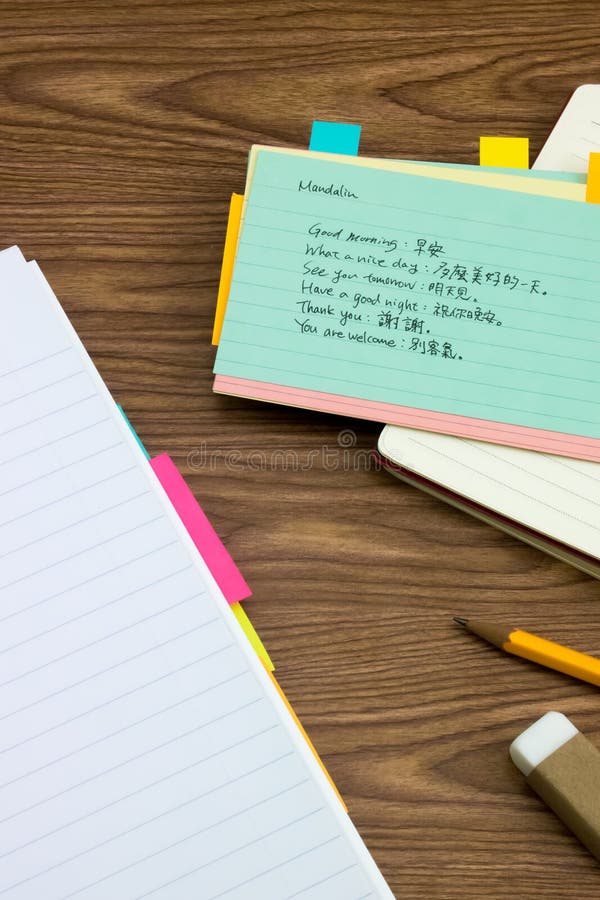 Mandalin
Good Morning : 早安
What a nice day : 多麼美好的一天。
See you tomorrow : 明天見。
Have a good night : 祝你晚安。
Thank you : 謝謝。
You are welcome : 別客氣。
dreamstime